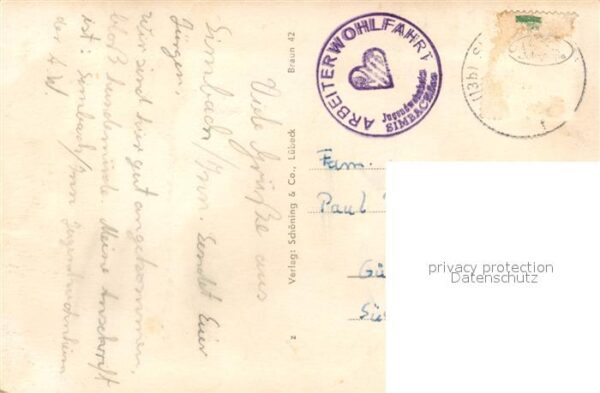 Viele Grüße aus
Simbach/Inn. Sendet Euer
Jürgen.
Wir sind hier gut angekommen,
bloß hundemüde. Meine Anschrift
ist: Simbach/Inn Jugendwohnheim
der A.W.
Verlag: Schöning & Co., Lübeck
Braun 42
z
ARBEITERWOHLFAHRT
Jugendwohnheim
SIMBACH/Inn
(13
Fam.
Paul
Gü
privacy protection
Datenschutz